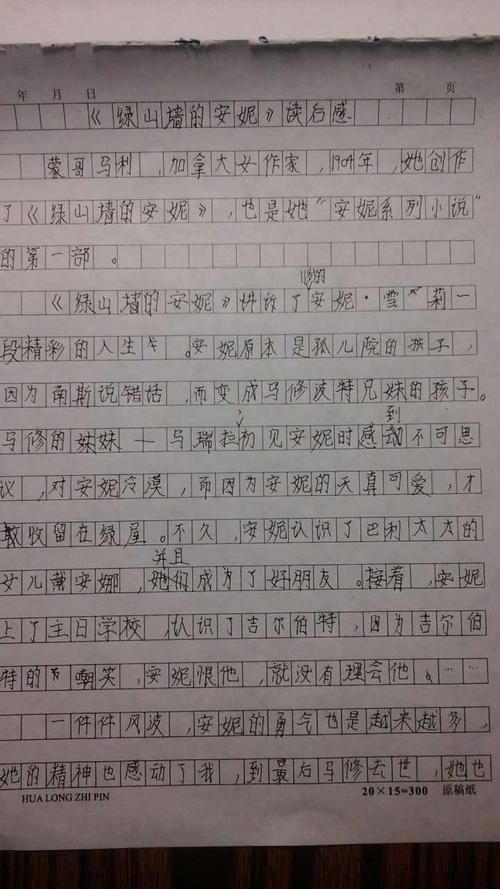 年 月 日 第 页
《绿山墙的安妮》读后感
蒙哥马利,加拿大女作家,1904年,她创作
了《绿山墙的安妮》,也是她“安妮系列小说”
的第一部。
修的
《绿山墙的安妮》讲诉了安妮·雪莉一
段精彩的人生。安妮原本是孤儿院的孩子,
因为南斯说错话,而变成马修波特兄妹的孩子。
到
马修的妹妹—马瑞拉初见安妮时感动不可思
议,对安妮冷漠,而因为安妮的天真可爱,才
敢收留在绿屋。不久,安妮认识了巴利太太的
并且
女儿黛安娜,她们成为了好朋友。接着,安妮
上了主日学校,认识了吉尔伯特,因为吉尔伯
特的嘲笑,安妮恨他,就没有理会他……
一件件风波,安妮的勇气也是越来越多,
她的精神也感动了我,到最后马修去世,她也
HUA LONG ZHI PIN 20×15=300 原稿纸